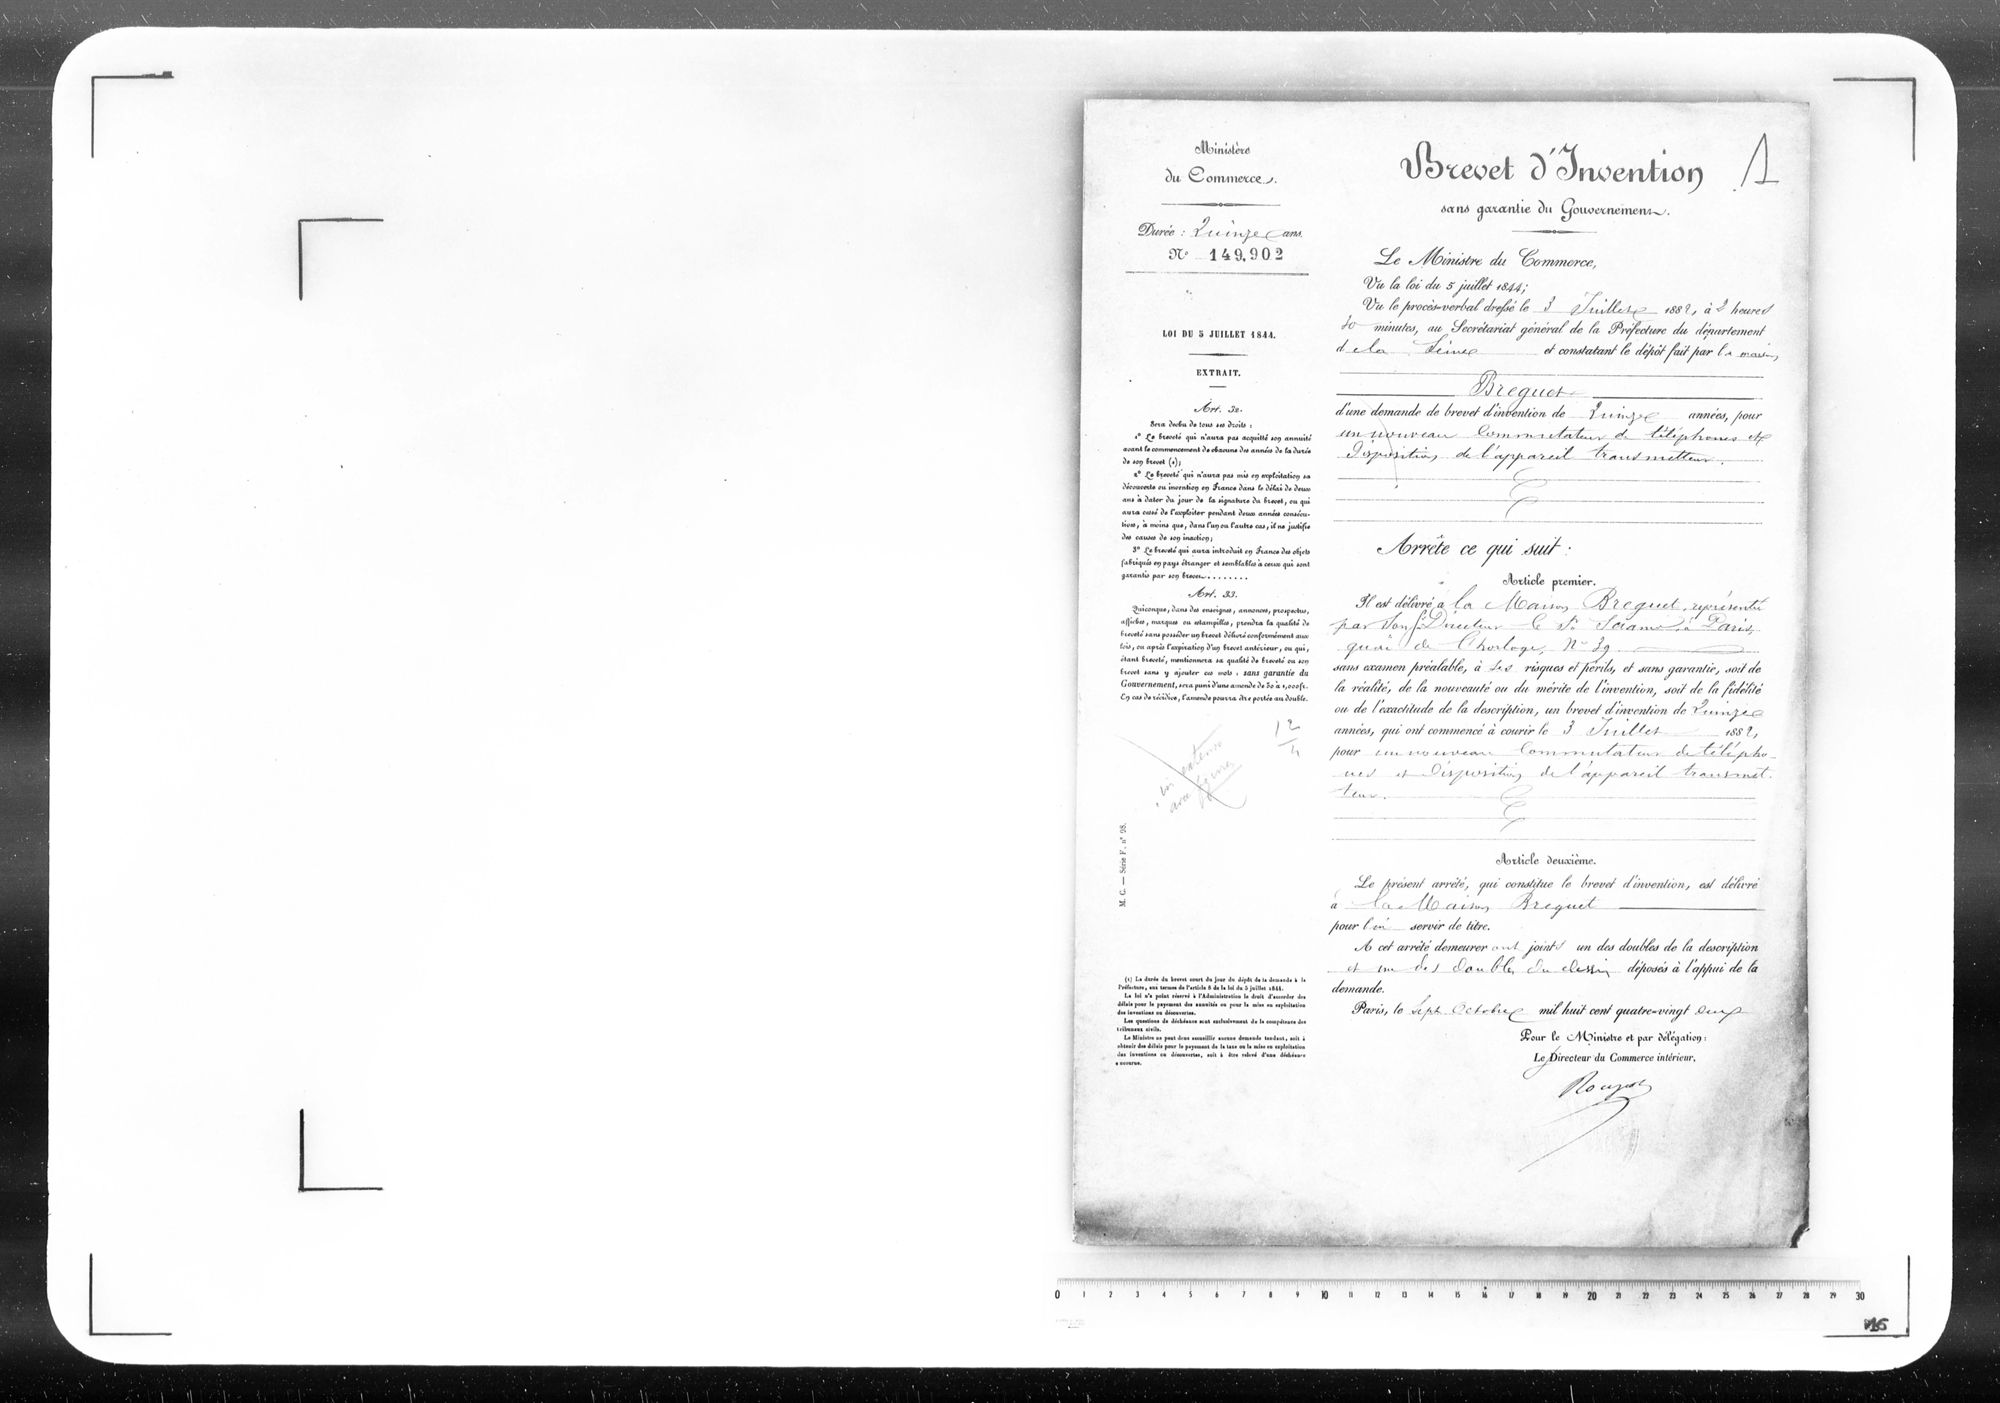 Ministère
du Commerce.
Durée : Quinze ans.
N° 149,902
LOI DU 5 JUILLET 1844.
EXTRAIT.
Art. 32.
Sera déchu de tous ses droits :
1° Le breveté qui n'aura pas acquitté son annuité
avant le commencement de chacune des années de la durée
de son brevet (1);
2° Le breveté qui n'aura pas mis en exploitation sa
découverte ou invention en France dans le délai de deux
ans à dater du jour de la signature du brevet, ou qui
aura cessé de l'exploiter pendant deux années consécu-
tives, à moins que, dans l'un ou l'autre cas, il ne justifie
des causes de son inaction;
3° Le breveté qui aura introduit en France des objets
fabriqués en pays étranger et semblables à ceux qui sont
garantis par son brevet........
Art. 33.
Quiconque, dans des enseignes, annonces, prospectus,
affiches, marques ou estampilles, prendra la qualité de
breveté sans posséder un brevet délivré conformément aux
lois, ou après l'expiration d'un brevet antérieur, ou qui,
étant breveté, mentionnera sa qualité de breveté ou son
brevet sans y ajouter ces mots : sans garantie du
Gouvernement, sera puni d'une amende de 50 à 1,000 fr.
En cas de récidive, l'amende pourra être portée au double.
12
in extenso
avec
M. C. — Série F, n° 98.
(1) La durée du brevet court du jour du dépôt de la demande à la
Préfecture, aux termes de l'article 8 de la loi du 5 juillet 1844.
La loi n'a point réservé à l'Administration le droit d'accorder des
délais pour le payement des annuités ou pour la mise en exploitation
des inventions ou découvertes.
Les questions de déchéance sont exclusivement de la compétence des
tribunaux civils.
Le Ministre ne peut donc accueillir aucune demande tendant, soit à
obtenir des délais pour le payement de la taxe ou la mise en exploitation
des inventions ou découvertes, soit à être relevé d'une déchéance
encourue.
Brevet d'Invention
1
sans garantie du Gouvernement.
Le Ministre du Commerce,
Vu la loi du 5 juillet 1844;
Vu le procès-verbal dressé le 3 Juillet 1882, à 2 heures
30 minutes, au Secrétariat général de la Préfecture du département
de la Seine et constatant le dépôt fait par la maison
Breguet
d'une demande de brevet d'invention de Quinze années, pour
un nouveau Commutateur de téléphones et
Disposition de l'appareil transmetteur.
Arrête ce qui suit :
Article premier.
Il est délivré à la Maison Breguet, représentée
par son Directeur le Sr à Paris,
quai de l'horloge, N° 39
sans examen préalable, à ses risques et périls, et sans garantie, soit de
la réalité, de la nouveauté ou du mérite de l'invention, soit de la fidélité
ou de l'exactitude de la description, un brevet d'invention de Quinze
années, qui ont commencé à courir le 3 Juillet 1882,
pour un nouveau Commutateur de télépho-
nes et Disposition de l'appareil transmet-
teur.
Article deuxième.
Le présent arrêté, qui constitue le brevet d'invention, est délivré
à la Maison Breguet
pour lui servir de titre.
A cet arrêté demeureront joints un des doubles de la description
et un des doubles du dessin déposés à l'appui de la
demande.
Paris, le Sept Octobre mil huit cent quatre-vingt deux
Pour le Ministre et par délégation :
Le Directeur du Commerce intérieur,
0 1 2 3 4 5 6 7 8 9 10 11 12 13 14 15 16 17 18 19 20 21 22 23 24 25 26 27 28 29 30